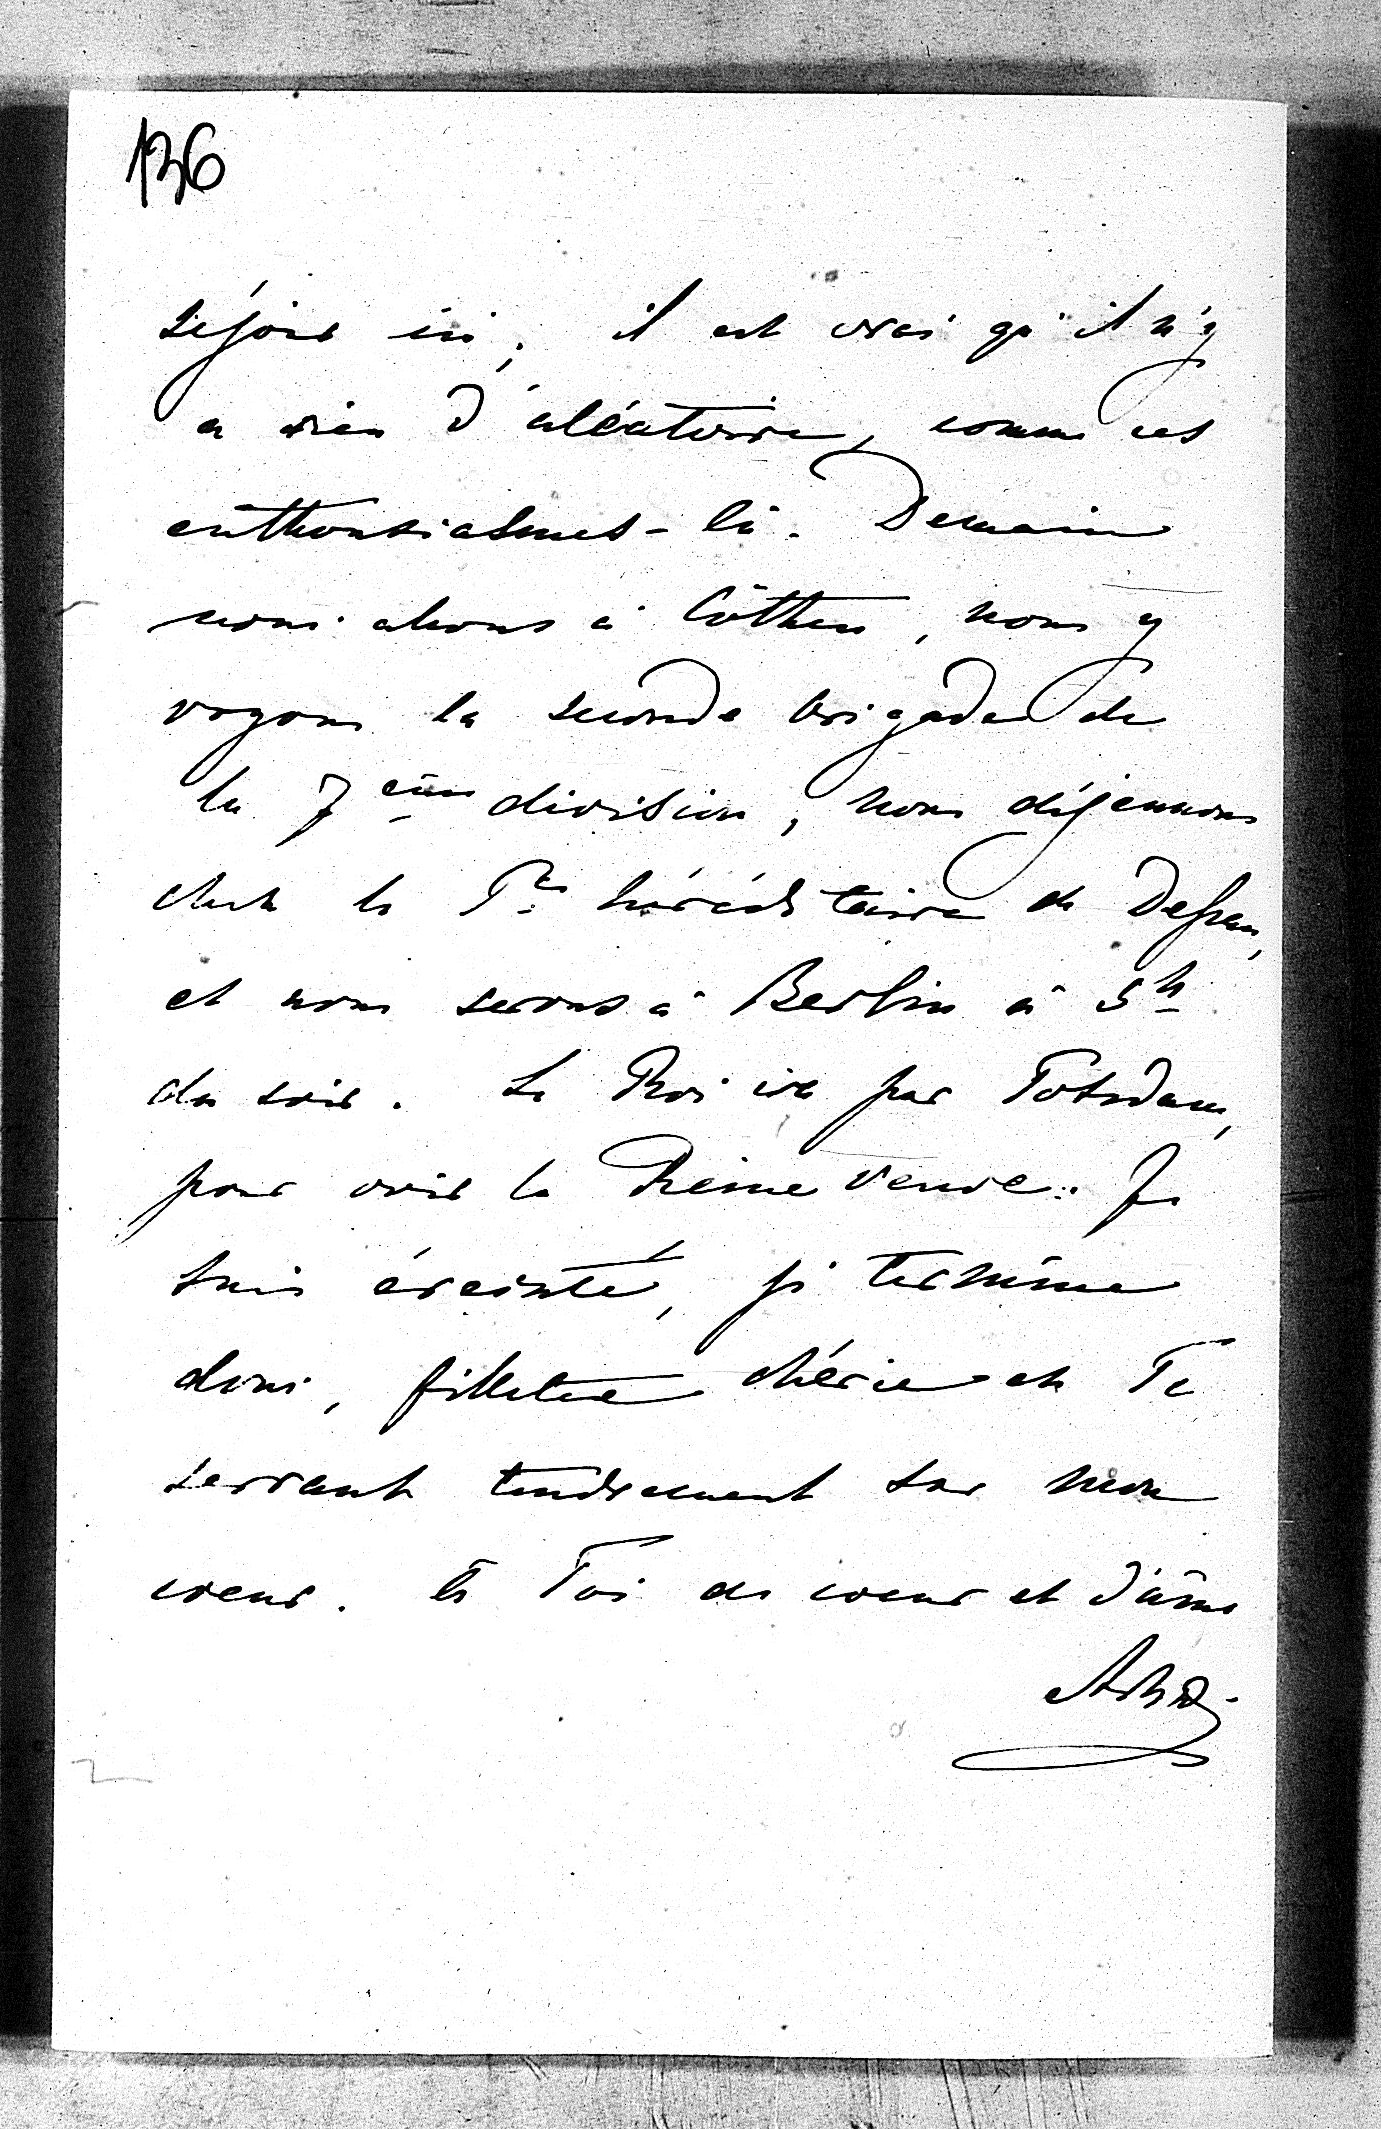 136
séjour ici, il est vrai qu'il n'y
a rien d'aléatoire, comme ces
enthousiasmes-là. Demain
nous allons à Cöthen, nous y
voyons la seconde brigade de
la 7ème division, nous déjeunons
chez le Pce héréditaire de Dessau,
et nous serons à Berlin à 5h
du soir. Le Roi ira par Potsdam,
pour voir la Reine veuve. Je
suis éreinté, je termine
donc, fillette chérie en Te
serrant tendrement sur mon
coeur. à Toi de coeur et d'âme